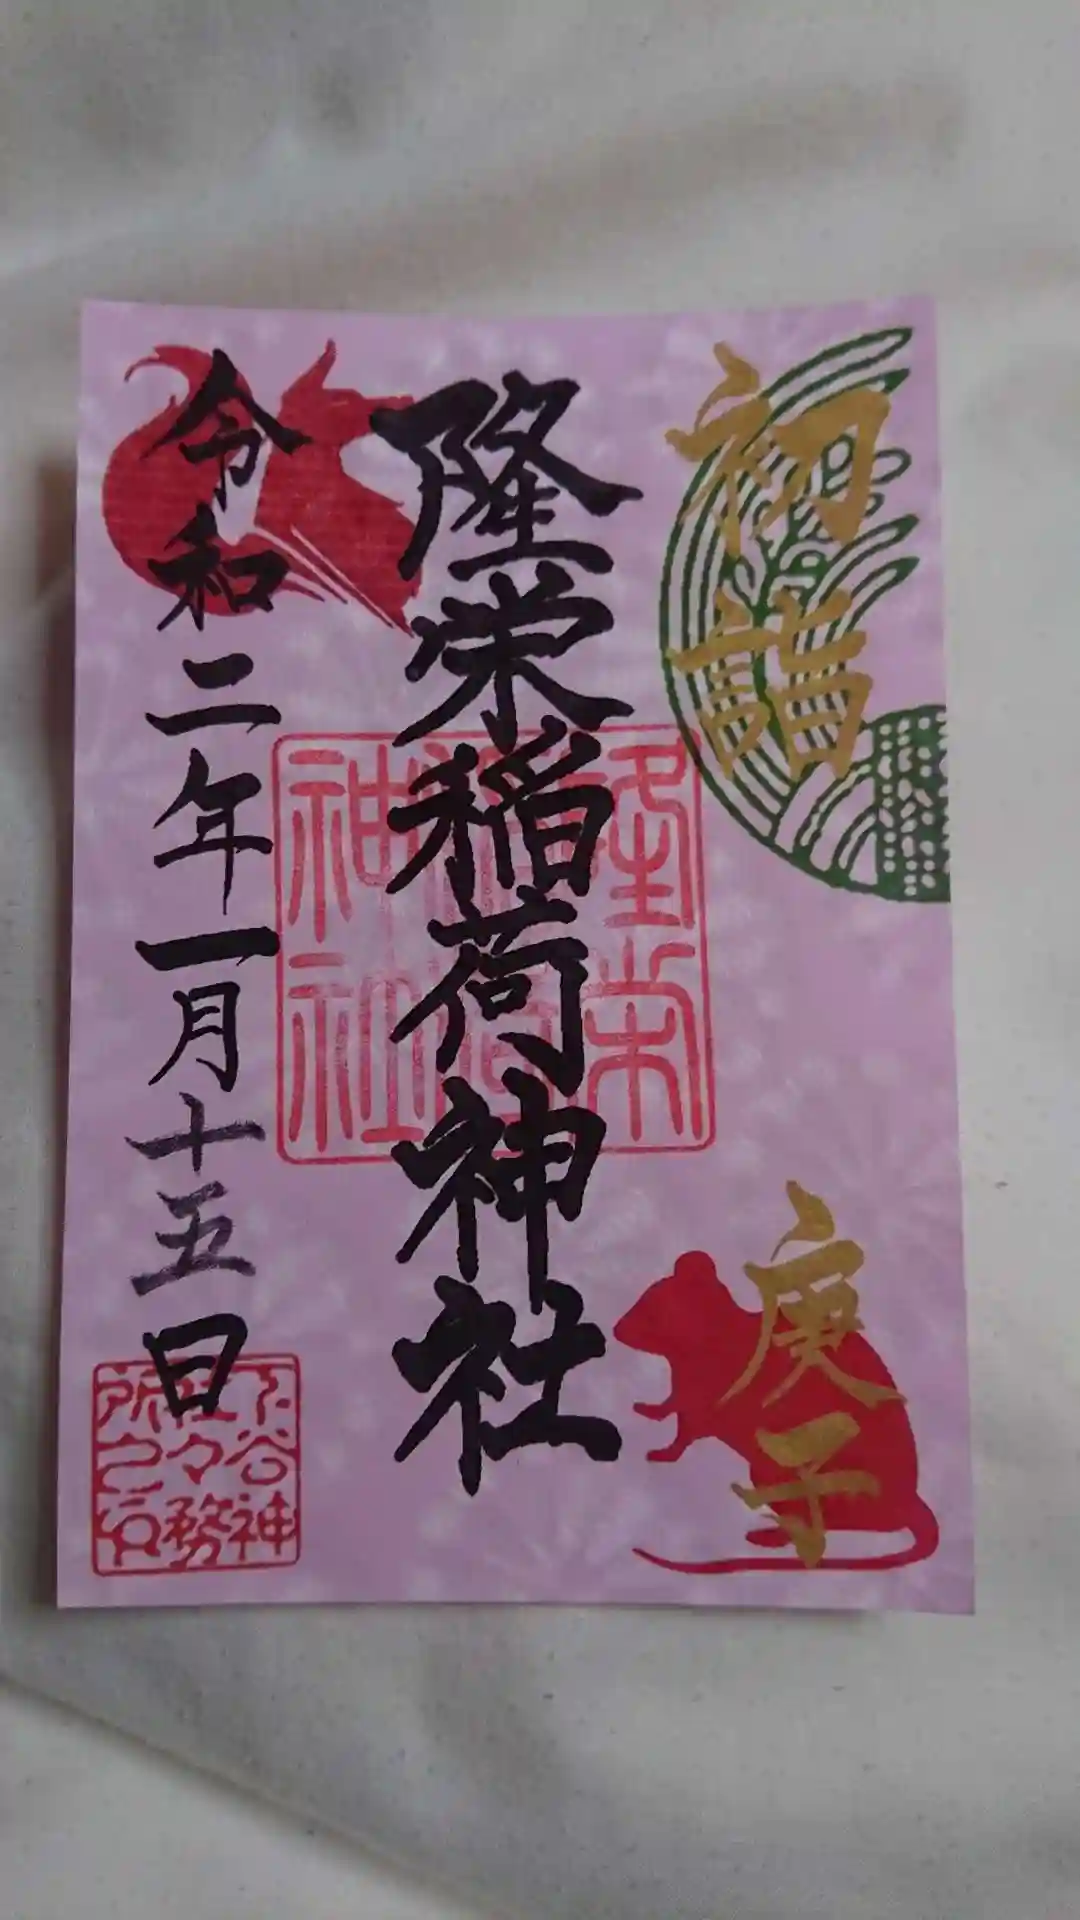 初詣
庚子
隆栄稲荷神社
令和二年一月十五日
隆栄
稲荷
神社
下谷神
社々務
所之印